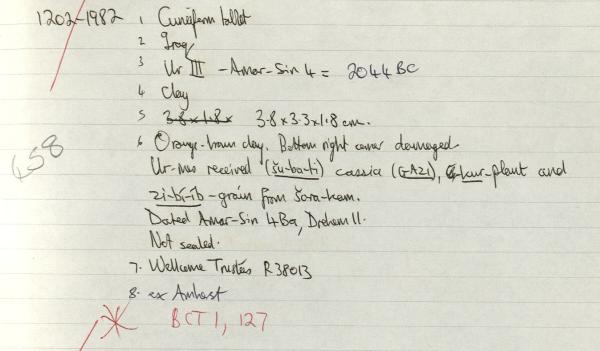 1202-1982 1 Cuneiform tablet
2 Iraq
3 Ur III - Amar-Sin 4 = 2044 BC
4 Clay
5 3.8 x 1.8 x 3.8 x 3.3 x 1.8 cm.
6 Orange-brown clay. Bottom right corner damaged
Ur-mes received (šu-ba-ti) cassia (GAZI), kur-plant and
zi-bí-íb-grain from Šara-kam.
Dated Amar-Sin 4 Ba, Drehem 11.
Not sealed.
7. Wellcome Trustees R38013
8. ex Amherst
BCT 1, 127
658